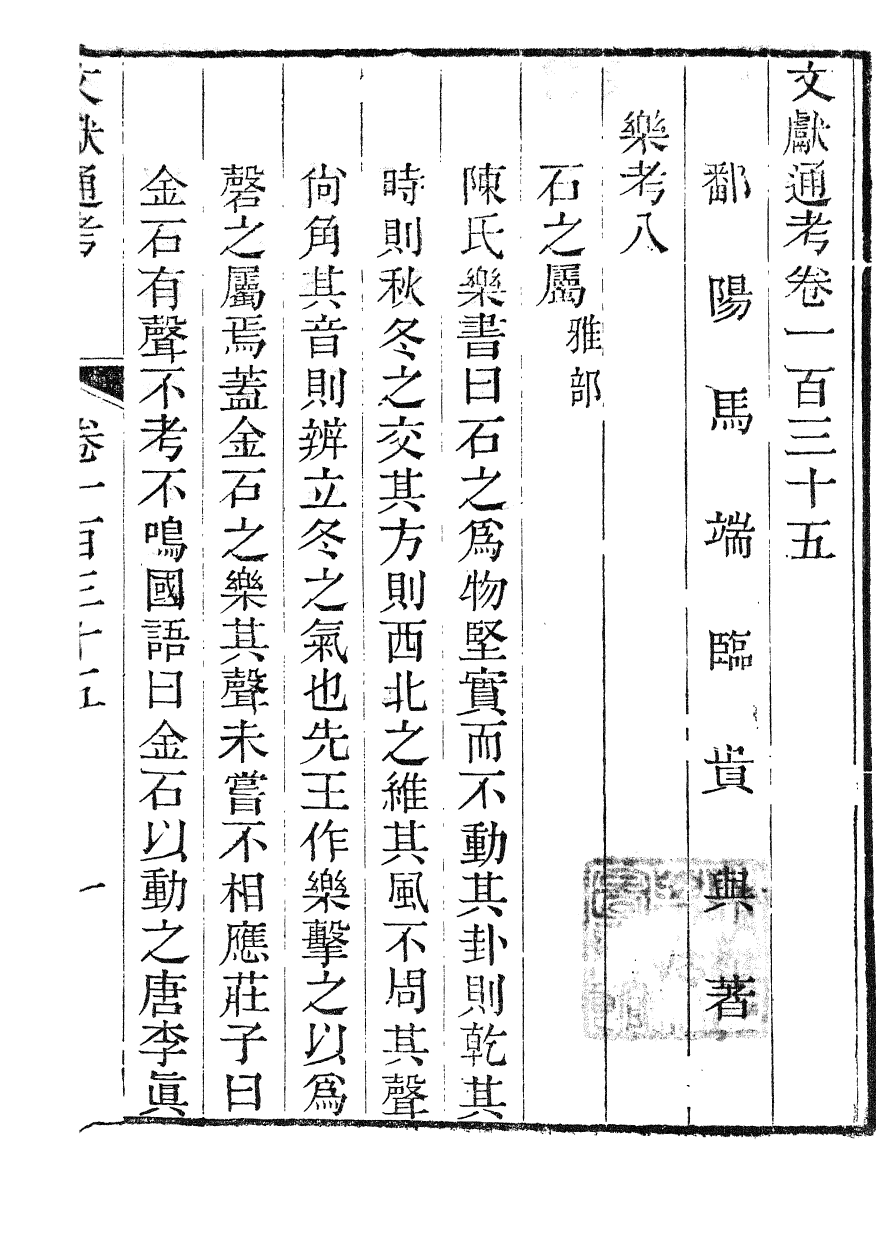 文獻通考卷一百三十五
鄱陽馬端臨貴與著
樂考八
石之屬雅部
陳氏樂書曰石之爲物堅實而不動其卦則乾其
時則秋冬之交其方則西北之維其風不周其聲
尙角其音則辨立冬之氣也先王作樂擊之以爲
磬之屬焉蓋金石之樂其聲未嘗不相應莊子曰
金石有聲不考不鳴國語曰金石以動之唐李眞
文獻通考 卷一百三十五 一